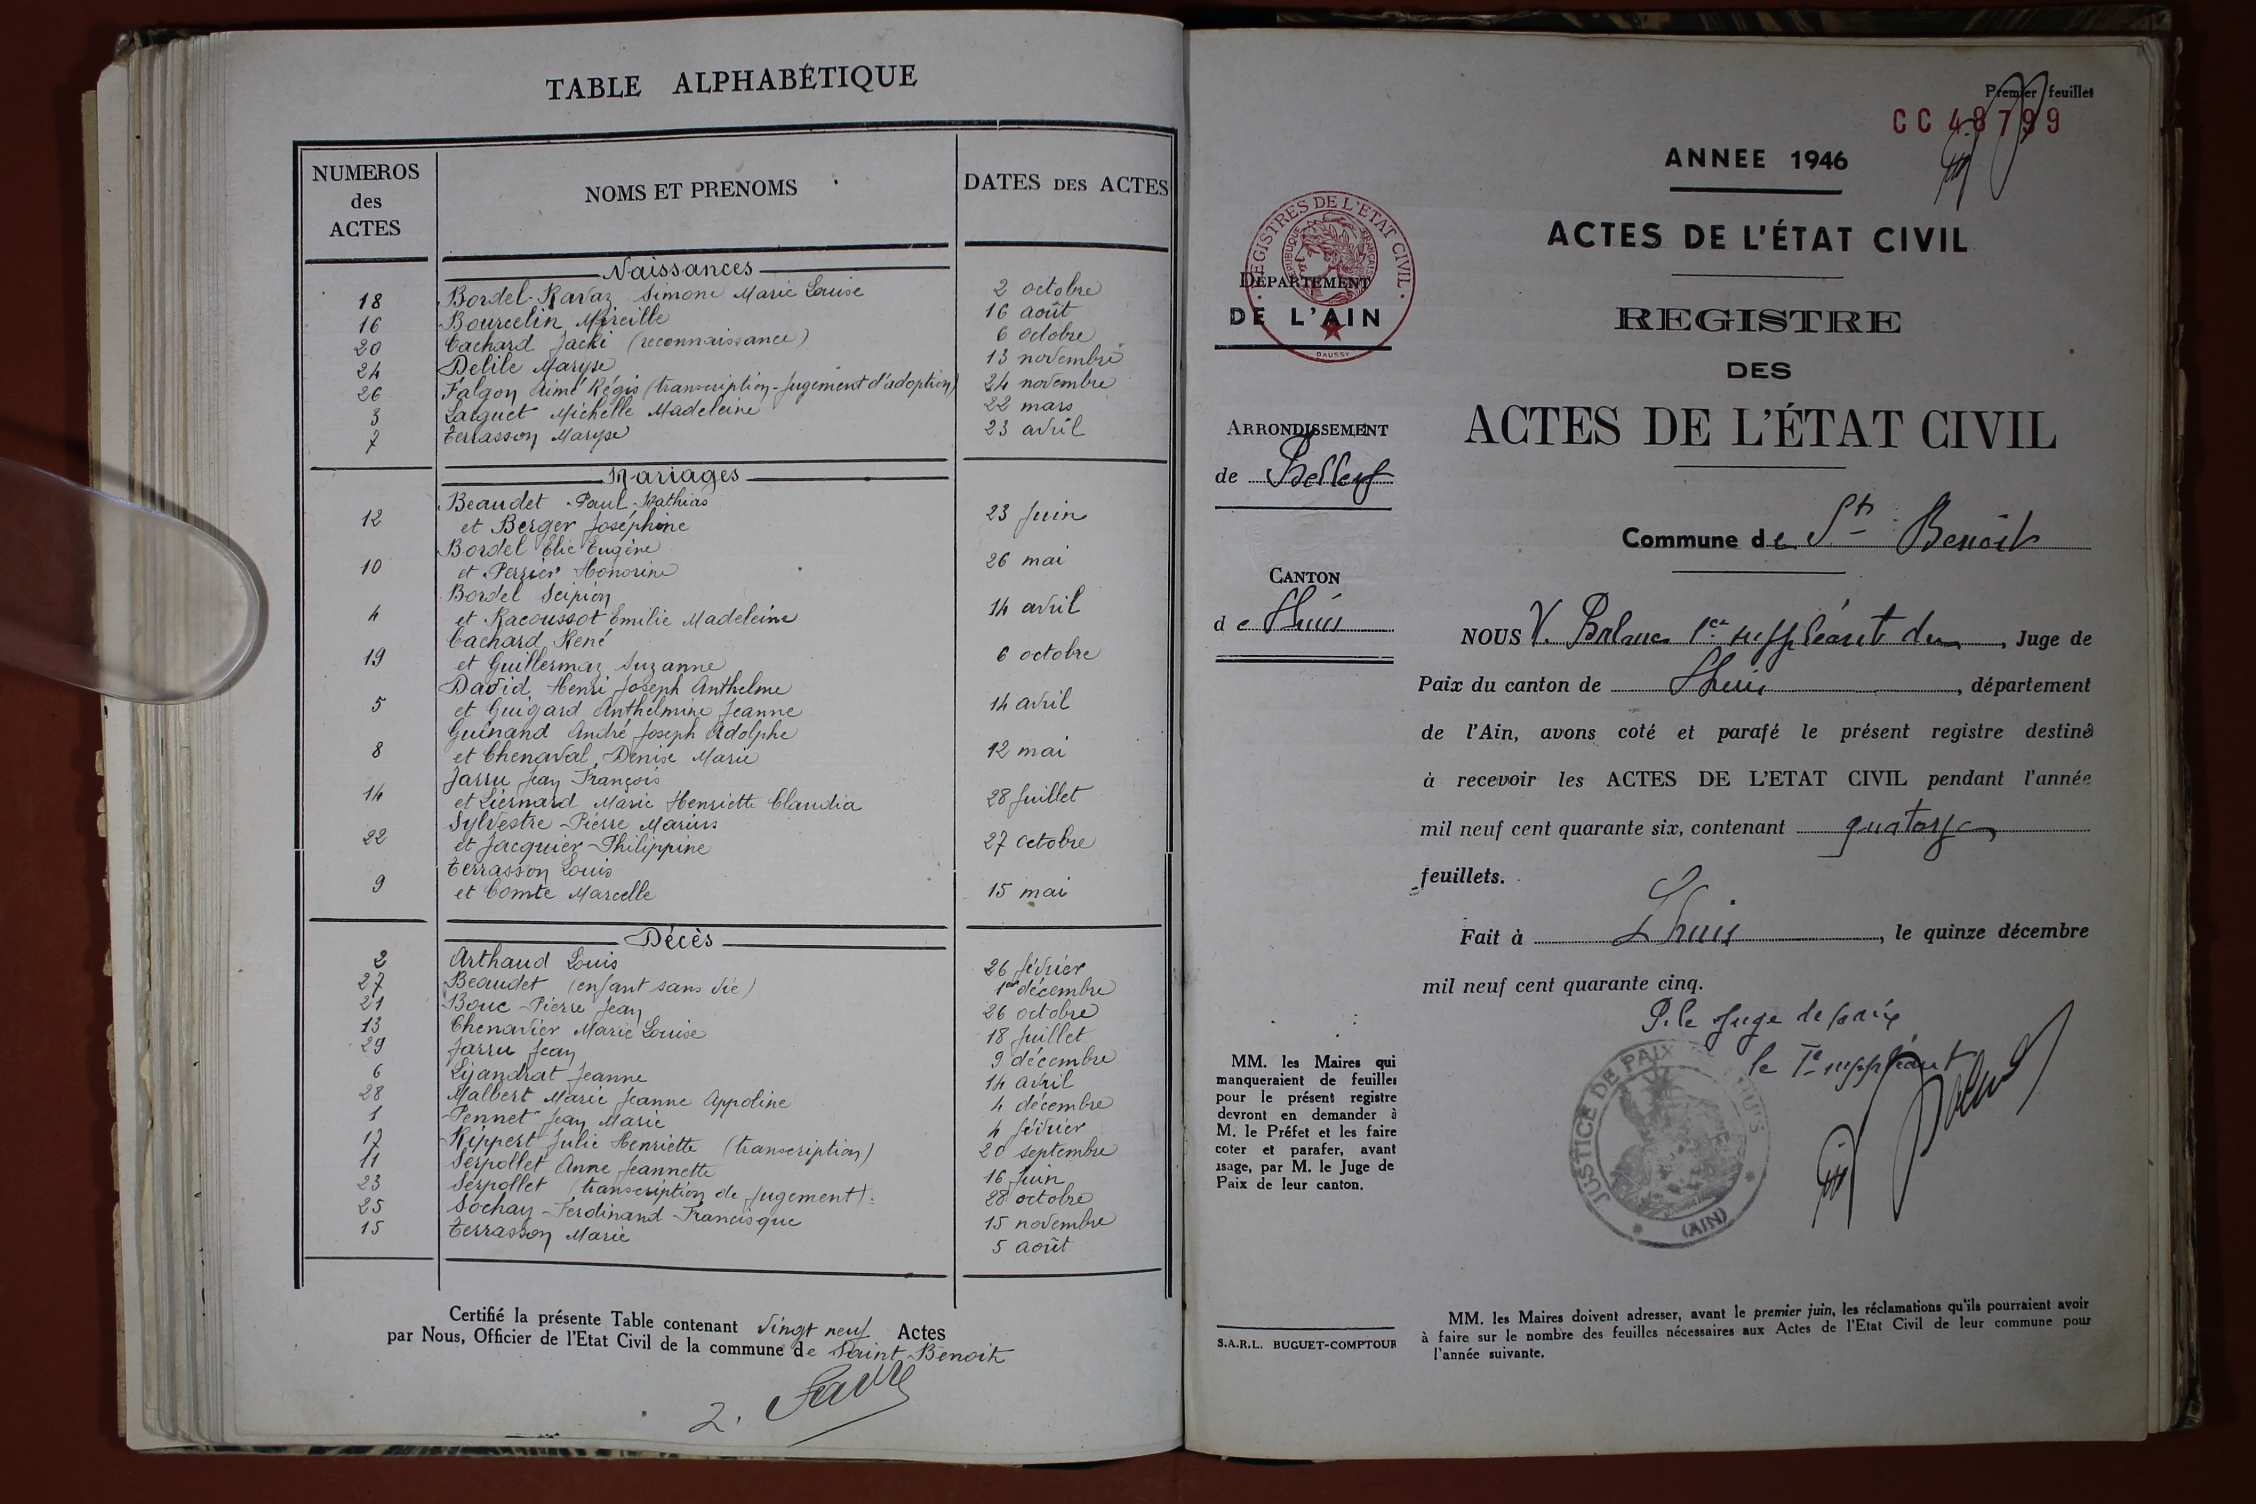 TABLE ALPHABÉTIQUE
NUMEROS des ACTES
NOMS ET PRENOMS
DATES DES ACTES
Naissances
18 Bordel-Ravaz Simone Marie Louise 2 octobre
16 Bourcelin Mireille 16 août
20 Cachard Jacki (reconnaissance) 6 octobre
24 Delile Maryse 13 novembre
26 Falgon Aimé Régis (transcription-Jugement d'adoption) 24 novembre
3 Larguet Michelle Madeleine 22 mars
7 Terrasson Maryse 23 avril
Mariages
Beaudet Paul Mathias
12 et Berger Joséphine 23 Juin
Bordel Elie Eugène
10 et Perrier Honorine 26 mai
Bordel Scipion
4 et Racoussot Emilie Madeleine 14 avril
Cachard René
19 et Guillermaz Suzanne 6 octobre
David Henri Joseph Anthelme
5 et Guigard Anthelmine Jeanne 14 avril
Guinand André Joseph Adolphe
8 et Chenaval Denise Marie 12 mai
Jarru Jean François
14 et Liernard Marie Henriette Claudia 28 Juillet
Sylvestre Pierre Marius
22 et Jacquier Philippine 27 octobre
Terrasson Louis
9 et Comte Marcelle 15 mai
Décès
2 Arthaud Louis 26 février
27 Beaudet (enfant sans vie) 1er décembre
21 Bouc Pierre Jean 26 octobre
13 Chenavier Marie Louise 18 Juillet
29 Jarru Jean 9 décembre
6 Lijandrat Jeanne 14 avril
28 Malbert Marie Jeanne Appoline 4 décembre
1 Pennet Jean Marie 4 février
17 Rippert Julie Henriette (transcription) 20 septembre
11 Serpollet Anne Jeannette 16 Juin
23 Serpollet (transcription de Jugement). 28 octobre
25 Sochay Ferdinand Francisque 15 novembre
15 Terrasson Marie 5 août
Certifié la présente Table contenant vingt neuf Actes
par Nous, Officier de l'Etat Civil de la commune de Saint-Benoit
Premier feuillet
CC 48799
ANNEE 1946
ACTES DE L'ÉTAT CIVIL
REGISTRE
DES
ACTES DE L'ÉTAT CIVIL
REGISTRES DE L'ETAT CIVIL
REPUBLIQUE FRANÇAISE
DAUSSY
DÉPARTEMENT
DE L'AIN
ARRONDISSEMENT
de Belley
CANTON
de Lhuis
Commune de St Benoit
NOUS V. Balme 1er suppléant du Juge de
Paix du canton de Lhuis, département
de l'Ain, avons coté et parafé le présent registre destiné
à recevoir les ACTES DE L'ETAT CIVIL pendant l'année
mil neuf cent quarante six, contenant quatorze
feuillets.
Fait à Lhuis, le quinze décembre
mil neuf cent quarante cinq.
P. le Juge de paix
le 1er suppléant
JUSTICE DE PAIX
(AIN)
MM. les Maires qui
manqueraient de feuilles
pour le présent registre
devront en demander à
M. le Préfet et les faire
coter et parafer, avant
usage, par M. le Juge de
Paix de leur canton.
S.A.R.L. BUGUET-COMPTOUR
MM. les Maires doivent adresser, avant le premier juin, les réclamations qu'ils pourraient avoir
à faire sur le nombre des feuilles nécessaires aux Actes de l'Etat Civil de leur commune pour
l'année suivante.